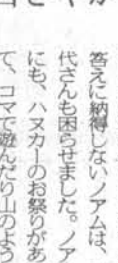 答えに納得しないノアムは、
代さんも困らせました。ノア
にも、ハヌカーのお祭りがあ
て、コマで遊んだり山のよう